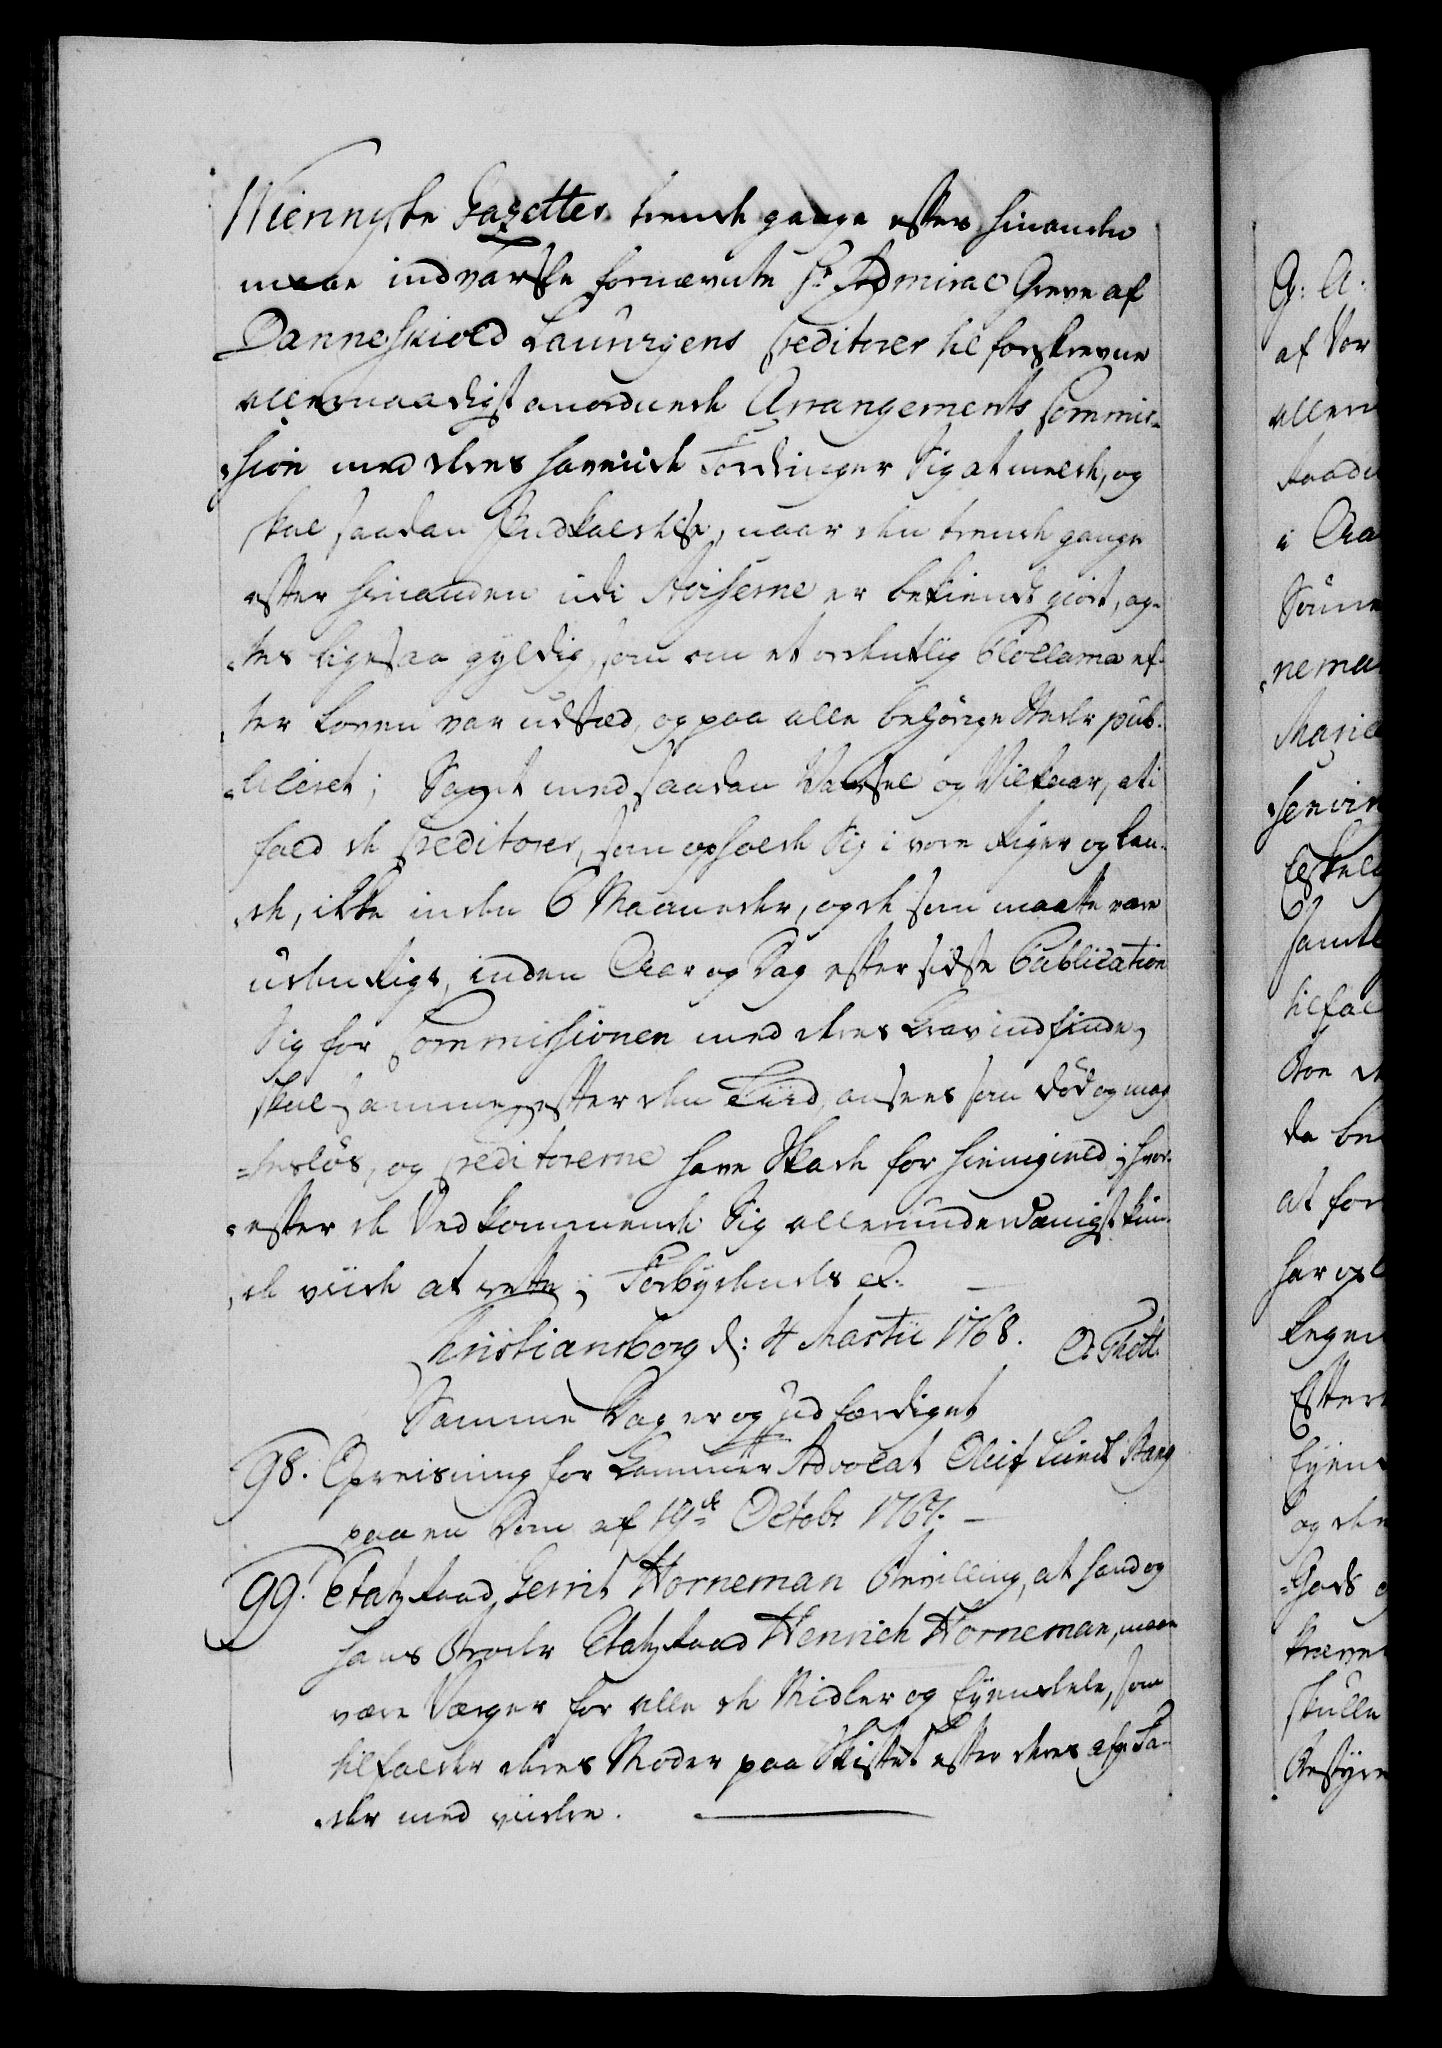 Wiennyske Gazetter trende gange efter hinanden
maae indvarsle fornævnte Hr Admiral Greve af
Danneskiold Laurvigens Creditorer til forskrevne
allernaadigst anordnede Arrangements Commis-
sion med deres havende Fordringer Sig at melde, og
skal saadan Indkaldelse, naar den trende gange
efter hinanden udi Aviserne er bekiendt giort, ag-
tes ligesaa gyldig, som om et ordentlig Proclama ef-
ter Loven var udstæd, og paa alle behörige Steder pub-
liceret; Samt med saadan Varsel og Vilkaar, at i
fald de Creditorer, som opholde Sig i vore Riger og Lan-
de, ikke inden 6 Maaneder, og de som maatte være
udenrigs, inden Aar og Dag efter sidste Publication
Sig for Commissionen med deres Krav indfinde,
skal samme, efter den Tiid, ansees som död og mag-
tesløs, og Creditorerne have Skade for hiemgield; hvor-
efter de Vedkommende Sig allerunderdanigst kun-
de viide at rette; Forbydendes etc.
Christiansborg d: 4 Martii 1768. O. Thott.
Samme Dag er og udfærdiget
98. Opreisning for Cammer Advocat Oluf Lund Bang
paa en Dom af 19de Octobr 1767.
99. Etatz Raad Gerrit Horneman Bevilling, at hand og
hans Broder Etatz Raad Henrich Horneman, maae
være Værger for alle de Midler og Eyendele, som
tilfalder deres Moder paa Skiftet efter deres afg: Fa-
der med viidere.
G: A.
af Vor
allern
Raad
i Aa
Sönne
nema
Marie
Eskel
samt
tilfal
da be
at for
har op
Efter
Eyen
og de
Gods
skulle
Bestyre